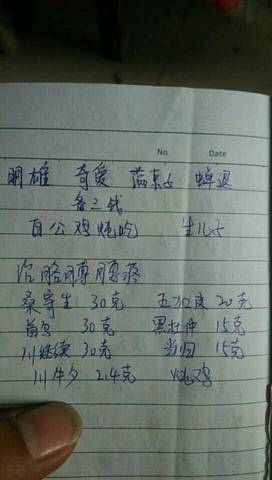 No Date
明雄 奇爱 蛇床子 蝉退
各三钱
白公鸡炖吃 生儿子
治胳膊腰疼
桑寄生 30克 五加皮 20克
首乌 30克 黑杜仲 15克
川继续 30克 当归 15克
川牛夕 24克 炖鸡